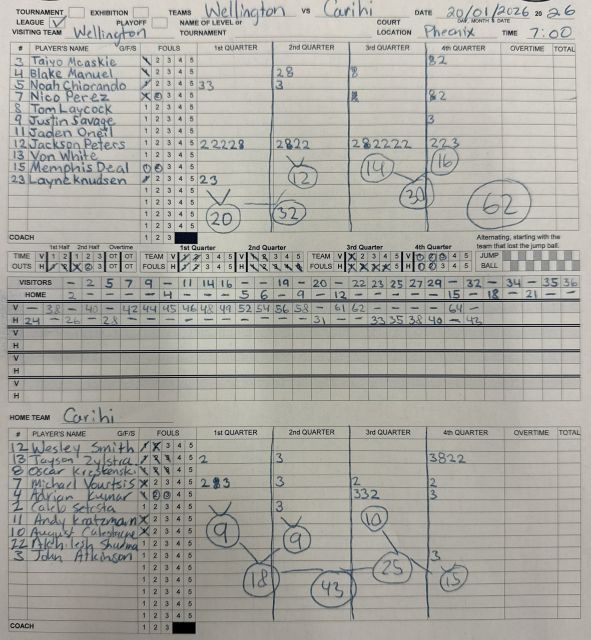 TOURNAMENT EXHIBITION TEAMS Wellington VS Carihi DATE 20/01/2026 20 26
LEAGUE PLAYOFF NAME OF LEVEL or COURT DAY, MONTH & DATE
VISITING TEAM Wellington TOURNAMENT LOCATION Pheonix TIME 7:00
# PLAYER'S NAME G/F/S FOULS 1st QUARTER 2nd QUARTER 3rd QUARTER 4th QUARTER OVERTIME TOTAL
3 Taiyo Mcaskie 1 2 3 4 5
4 Blake Manuel 1 2 3 4 5 28
5 Noah Chiorando 1 2 3 4 5 33 3
7 Nico Perez 3 4 5
8 Tom Laycock 1 2 3 4 5
9 Justin Savage 1 2 3 4 5 3
11 Jaden Oneil 1 2 3 4 5
12 Jackson Peters 1 2 3 4 5 22228 2822 282222 223
13 Von White 1 2 3 4 5 14 16
15 Memphis Deal 3 4 5 12
23 Layne Knudsen 2 3 4 5 23 30
1 2 3 4 5 20 32 62
1 2 3 4 5
1 2 3 4 5
COACH 1 2 3
Alternating, starting with the team that lost the jump ball.
1st Half 2nd Half Overtime 1st Quarter 2nd Quarter 3rd Quarter 4th Quarter
TIME V OT OT TEAM V H TEAM V JUMP
OUTS H OT OT FOULS H FOULS H BALL
VISITORS - 2 5 7 9 - 11 14 16 - - 19 - 20 - 22 23 25 27 29 - 32 - 34 - 35 36
HOME 2 - - - - 4 - - - 5 6 - 9 - 12 - - - - - 15 - 18 - 21 - -
V - 38 - 40 - 42 44 45 46 48 49 52 54 56 58 - 61 62 - 64 -
H 24 - 26 - 28 - 31 - - 33 35 38 40 - 43
V
H
V
H
V
H
HOME TEAM Carihi
# PLAYER'S NAME G/F/S FOULS 1st QUARTER 2nd QUARTER 3rd QUARTER 4th QUARTER OVERTIME TOTAL
12 Wesley Smith 3 4 5
13 Tayson Zylstra 4 5 2 3 3822
8 Oscar 4 5
7 Michael Vourtsis 2 3 4 5 2 3 2
4 Adrian Kumar 4 5 332 3
2 Caleb 1 2 3 4 5 3
11 Andy Kratzmann 2 3 4 5
10 August 2 3 4 5 9 9 10
22 Akhilesh Sharma 1 2 3 4 5
3 John Atkinson 1 2 3 4 5 3
1 2 3 4 5 18 43 25 15
1 2 3 4 5
1 2 3 4 5
1 2 3 4 5
COACH 1 2 3